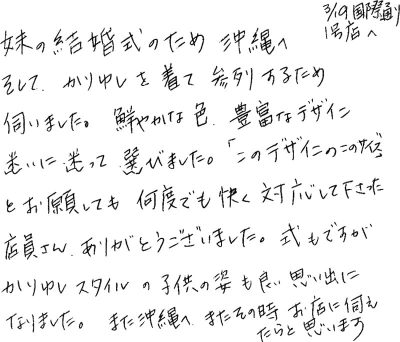 3/19 国際通り
1号店へ
妹の結婚式のため 沖縄へ
そして、かりゆしを着て 参列するため
伺いました。 鮮やかな色、豊富なデザイン
迷いに迷って 選びました。「このデザインのこのサイズ」
とお願しても 何度でも快く対応して下さった
店員さん、ありがとうございました。式もですが
かりゆしスタイルの子供の姿も良い思い出に
なりました。 また沖縄へ、またその時 お店に伺え
たらと思います